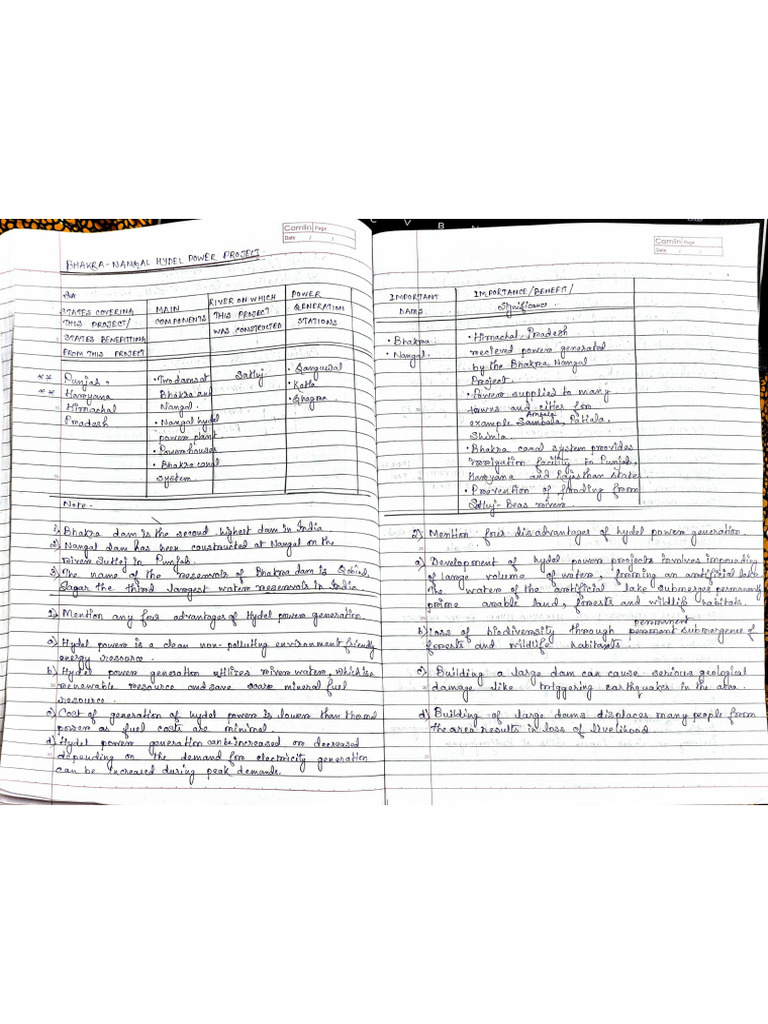 Camlin Page
Date / /
BHAKRA-NANGAL HYDEL POWER PROJECT
STATES COVERING THIS PROJECT/ STATES BENEFITTING FROM THIS PROJECT
MAIN COMPONENTS
RIVER ON WHICH THIS PROJECT WAS CONSTRUCTED
POWER GENERATION STATIONS
** Punjab
** Haryana
Himachal
Pradesh
• Two dams at
Bhakra and
Nangal.
• Nangal hydel
power plant
• Powerhouses
• Bhakra canal
system.
Satluj
• Ganguwal
• Kotla
• Ghagra
Note -
1) Bhakra dam is the second highest dam in India
2) Nangal dam has been constructed at Nangal on the
river Sutlej in Punjab.
3) The name of the reservoir of Bhakra dam is Gobind
Sagar the third largest water reservoir in India
1) Mention any four advantages of Hydel power generation.
a) Hydel power is a clean non-polluting environment friendly
energy resource.
b) Hydel power generation utilizes river water, which is a
renewable resource and save scarce mineral fuel
resource.
c) Cost of generation of hydel power is lower than thermal
power as fuel costs are minimal.
d) Hydel power generation can be increased or decreased
depending on the demand for electricity generation
can be increased during peak demands.
Camlin Page
Date / /
IMPORTANT DAMS
IMPORTANCE/BENEFIT/ Significance
• Bhakra
• Nangal
• Himachal Pradesh
recieved power generated
by the Bhakra Nangal
Project
• Power supplied to many
townes and cities for
example Ambala, Patiala,
Shimla
• Bhakra canal system provides
irrigation facility to Punjab,
Haryana and Rajsthan state
• Prevention of flooding from
Satluj-Beas rivers.
2) Mention four disadvantages of hydel power generation.
a) Development of hydel power projects involves impounding
of large volume of water, froming an artificial lake
The water of the artificial lake submerge permanently
prime arable land, forests and wildlife habitats.
b) Loss of biodiversity through permanent submergence of
forests and wildlife habitants.
c) Building a large dam can cause serious geological
damage like triggering earthquakes in the area.
d) Building of large dams displaces many people from
the area results in loss of livelihood.